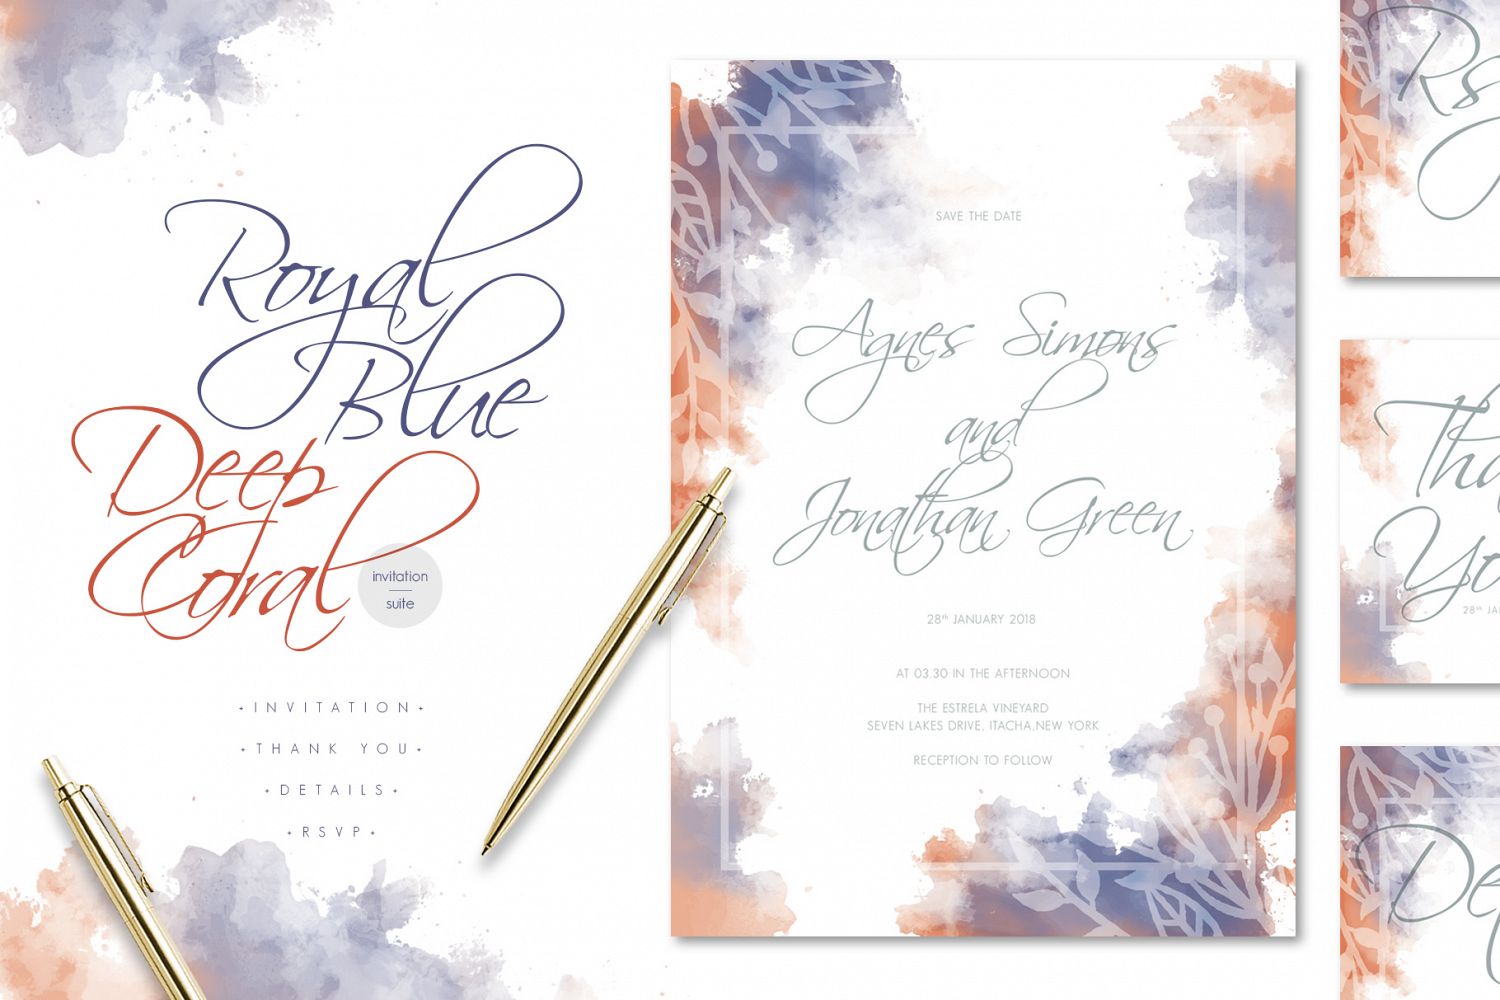 Royal
Blue
Deep
Coral
invitation
suite
INVITATION
THANK YOU
DETAILS
RSVP
SAVE THE DATE
Agnes Simons
and
Jonathan Green
28th JANUARY 2018
AT 03.30 IN THE AFTERNOON
THE ESTRELA VINEYARD
SEVEN LAKES DRIVE, ITACHA.NEW YORK
RECEPTION TO FOLLOW
Rs
Tha
Yo
28th JAN
De